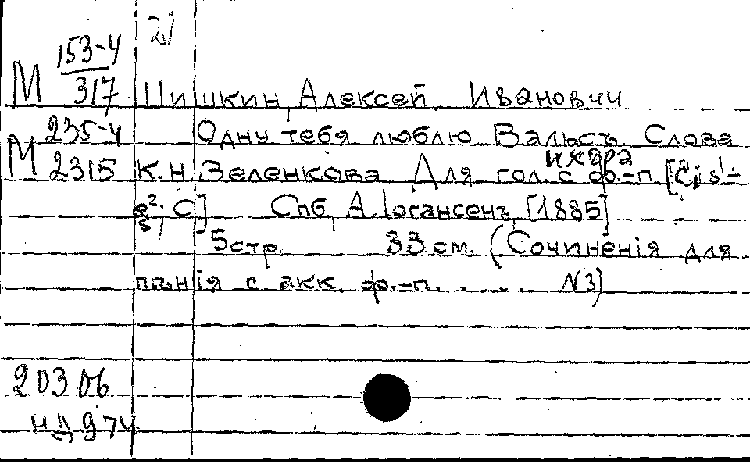 21
М 153-4/317 Шишкин, Алексей Иванович
М 235-4/2315 Одну тебя люблю Вальсъ Слова
К. Н. Зеленкова Для гол. с ф.-п. [cis¹-
С] Спб, А. Іогансенъ, [1885]
5 стр. 33 см. (Сочиненія для
пѣнія с акк. ф.-п. . . . . . N3)
20306